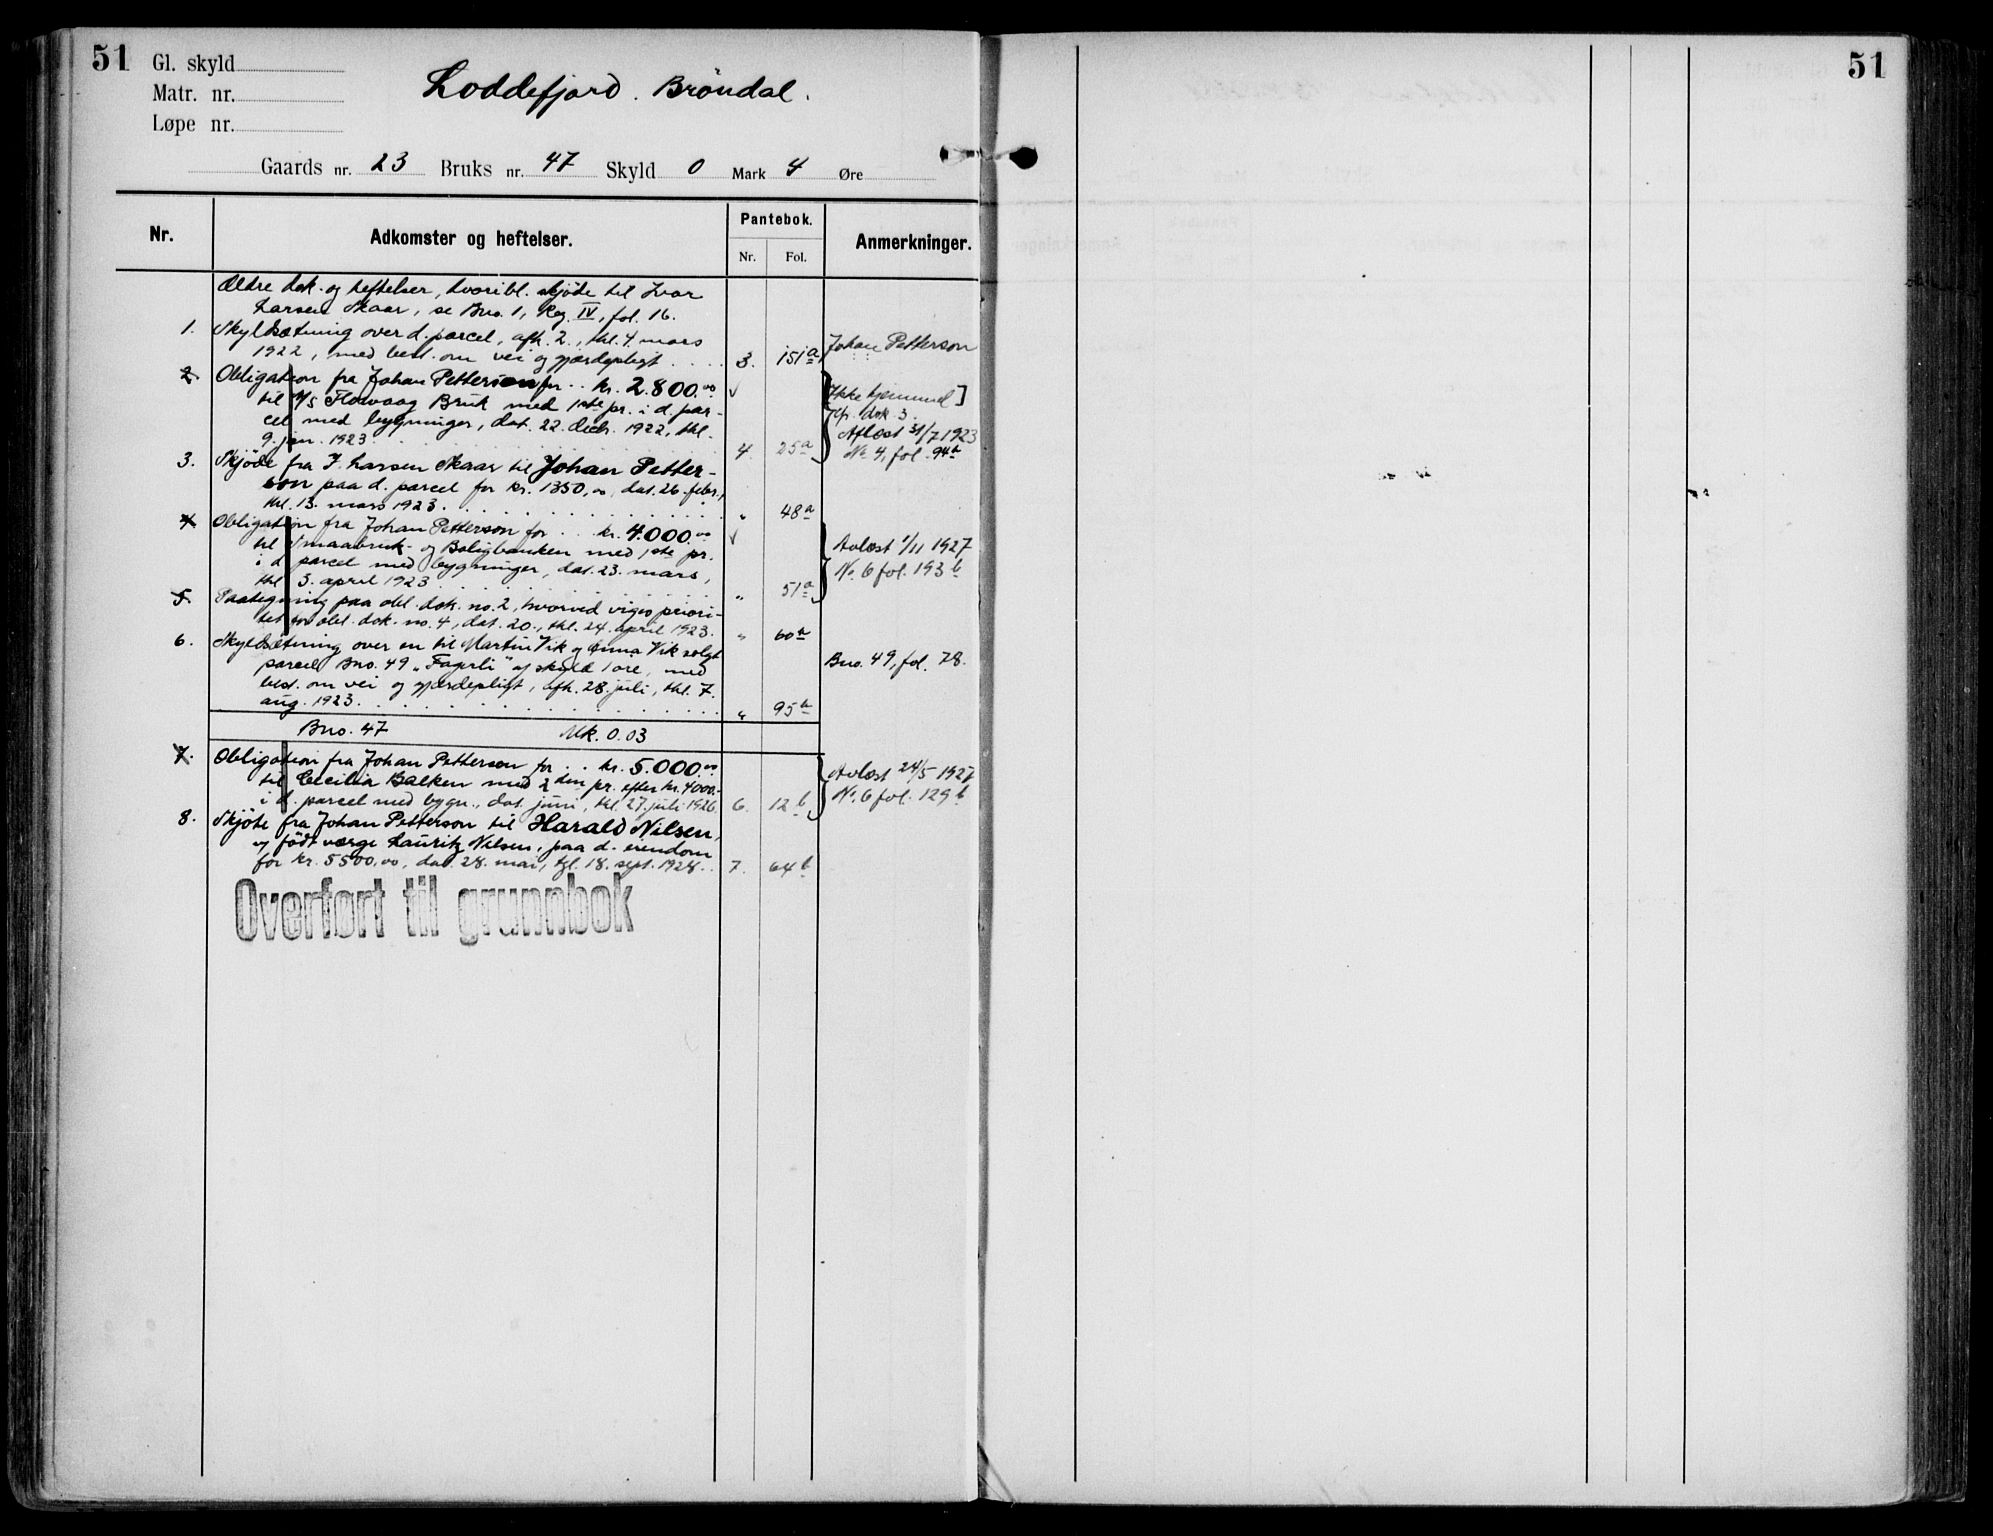 51
51
Gl. skyld
Matr. nr.
Løpe nr.
Loddefjord. Bröndal.
Gaards nr. 23 Bruks nr. 47 Skyld 0 Mark 4 Øre
Nr.
Adkomster og heftelser.
Pantebok.
Nr. Fol.
Anmerkninger.
Ældre dok. og heftelser, hvoribl. skjöde til Ivar
Larsen Skaar, se Bno. 1, Reg. IV, fol. 16.
1. Skyldsætning over d. parcel, afh. 2., thl. 4. mars
1922, med best. om vei og gjærdepligt .... 3. 151a
Johan Petterson
2. Obligation fra Johan Petterson for .. kr. 2.800.00
til A/S Flowaag Bruk med 1ste pr. i d. par-
cel med bygninger, dat. 22. decb. 1922, thl.
9. jan. 1923 4. 25a
[Ikke hjemmel]
cfr. dok. 3.
Aflöst 31/7 1923
No 4, fol. 94b
3. Skjöde fra I. Larsen Skaar til Johan Petter-
son paa d. parcel for kr. 1350,00, dat. 26. febr.,
thl. 13. mars 1923 " 48a
4. Obligation fra Johan Petterson for .. kr. 4.000.00
til Smaabruk- og Boligbanken med 1ste pr.
i d. parcel med bygninger, dat. 23. mars,
thl. 3. april 1923 " 51a
Avlöst 1/11 1927
No 6 fol. 193b
5. Paategning paa obl. dok. no. 2, hvorved viges priori-
tet for obl. dok. no. 4, dat. 20., thl. 24. april 1923. " 60b
6. Skyldsætning over en til Martin Vik og Anna Vik solgt
parcel Bno. 49 „Fagerli" af skyld 1 öre, med
best. om vei og gjærdepligt, afh. 28. juli, thl. 7.
aug. 1923. " 95b
Bno. 49, fol. 78.
Bno. 47 Mk. 0.03
7. Obligation fra Johan Petterson for .. kr. 5.000.00
til Cecilia Balken med 2den pr. efter kr. 4000.-
i d. parcel med bygn., dat. juni, thl. 27. juli 1926 6. 12b
Avlöst 24/5 1927
No 6 fol. 129b
8. Skjöte fra Johan Petterson til Harald Nilsen,
v/ födt verge Lauritz Nilsen, paa d. eiendom
for kr. 5500,00, dat. 28. mai, tgl. 18. sept. 1928. 7. 64b
Overført til grunnbok